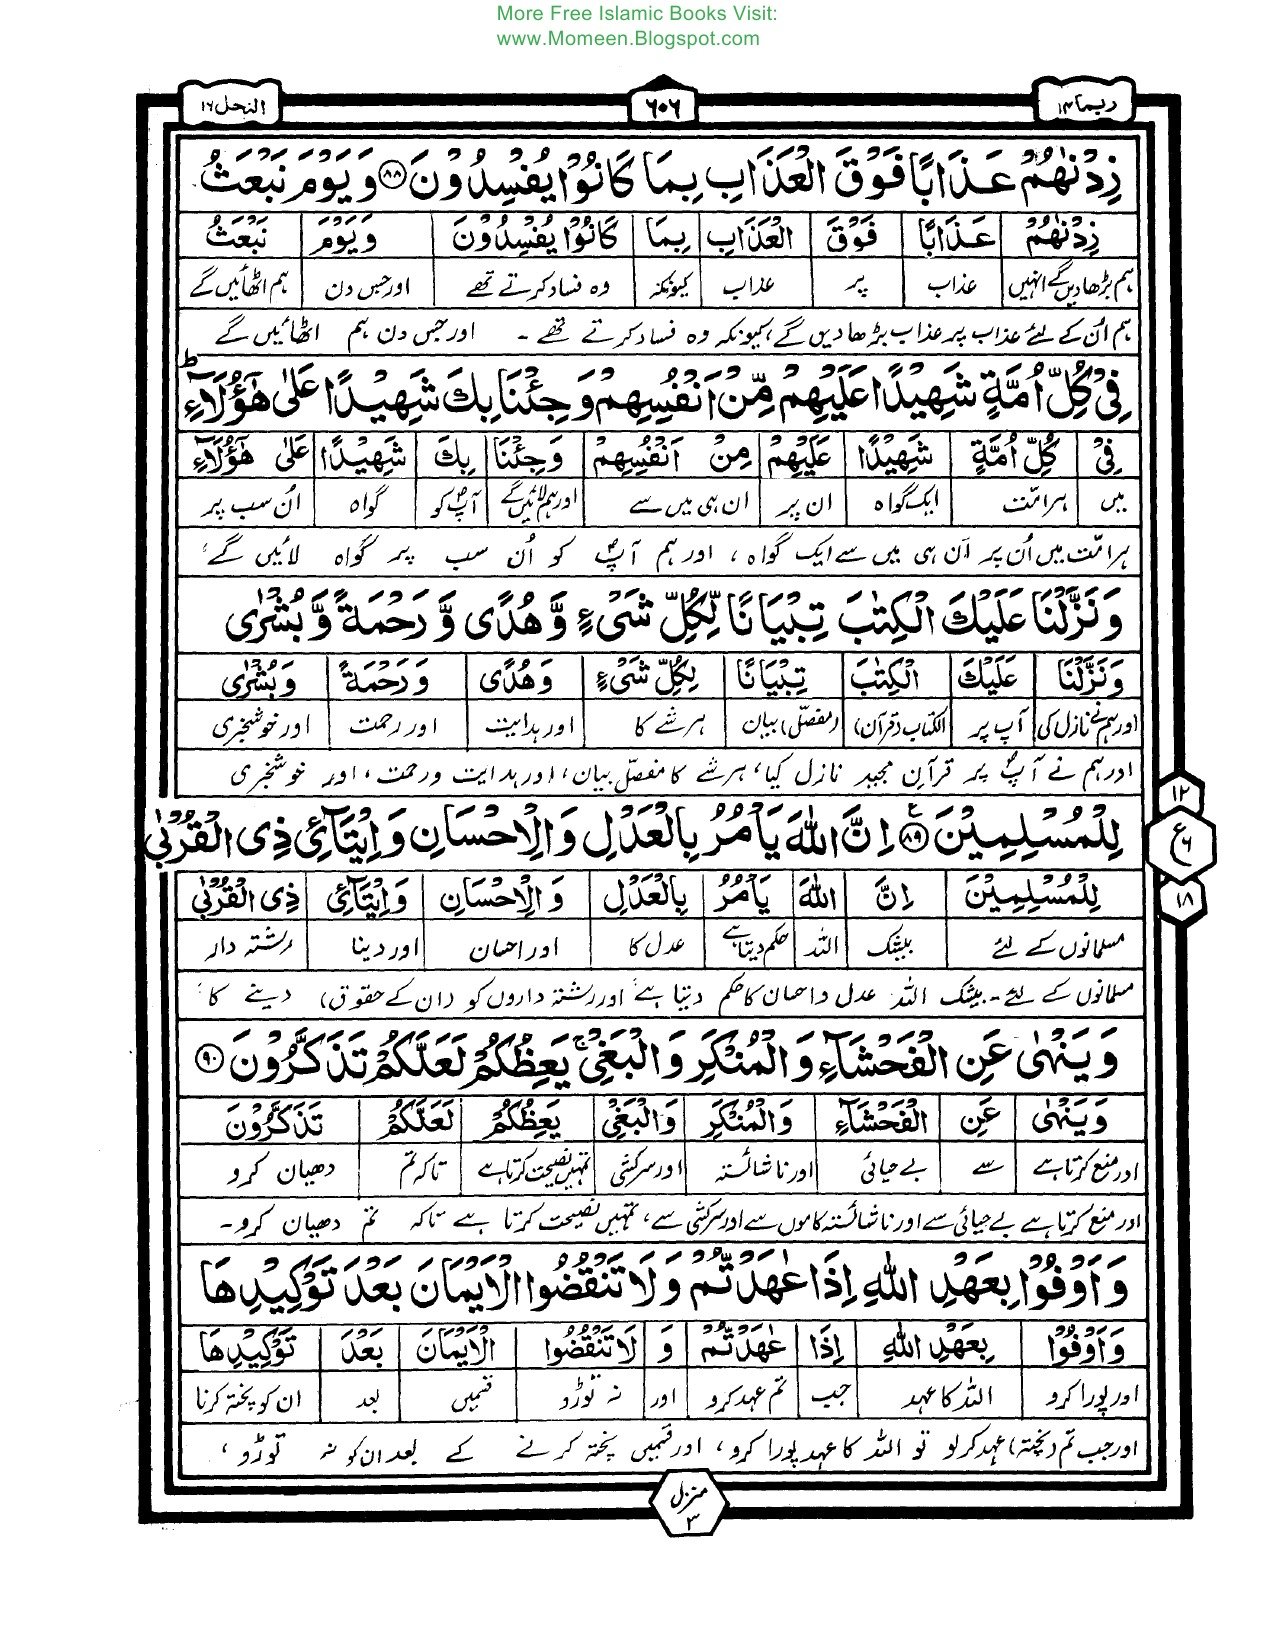 More Free Islamic Books Visit:
www.Momeen.Blogspot.com
ربما ۱۴
۶۰۶
النحل ۱۶
زِدْنٰهُمْ عَذَابًا فَوْقَ الْعَذَابِ بِمَا كَانُوْا يُفْسِدُوْنَ ﴿۸۸﴾ وَيَوْمَ نَبْعَثُ
زِدْنٰهُمْ عَذَابًا فَوْقَ الْعَذَابِ بِمَا كَانُوْا يُفْسِدُوْنَ وَيَوْمَ نَبْعَثُ
ہم بڑھادیں گے انہیں عذاب پر عذاب کیونکہ وہ فساد کرتے تھے اور جس دن ہم اٹھائیں گے
ہم اُن کے لئے عذاب پر عذاب بڑھادیں گے، کیونکہ وہ فساد کرتے تھے ۔ اور جس دن ہم اٹھائیں گے
فِيْ كُلِّ اُمَّةٍ شَهِيْدًا عَلَيْهِمْ مِّنْ اَنْفُسِهِمْ وَجِئْنَا بِكَ شَهِيْدًا عَلٰى هٰٓؤُلَآءِ ط
فِيْ كُلِّ اُمَّةٍ شَهِيْدًا عَلَيْهِمْ مِنْ اَنْفُسِهِمْ وَجِئْنَا بِكَ شَهِيْدًا عَلٰى هٰٓؤُلَآءِ
میں ہر امّت ایک گواہ ان پر ان ہی میں سے اور ہم لائیں گے آپؐ کو گواہ اُن سب پر
ہر امّت میں اُن پر اُن ہی میں سے ایک گواہ ، اور ہم آپؐ کو اُن سب پر گواہ لائیں گے،
وَنَزَّلْنَا عَلَيْكَ الْكِتٰبَ تِبْيَانًا لِّكُلِّ شَيْءٍ وَّهُدًى وَّرَحْمَةً وَّبُشْرٰى
وَنَزَّلْنَا عَلَيْكَ الْكِتٰبَ تِبْيَانًا لِكُلِّ شَيْءٍ وَهُدًى وَرَحْمَةً وَبُشْرٰى
اور ہم نے نازل کی آپ پر الکتاب (قرآن) (مفصّل) بیان ہر شے کا اور ہدایت اور رحمت اور خوشخبری
اور ہم نے آپؐ پر قرآن مجید نازل کیا، ہر شے کا مفصّل بیان، اور ہدایت ورحمت، اور خوشخبری
لِلْمُسْلِمِيْنَ ﴿۸۹﴾ ع اِنَّ اللّٰهَ يَاْمُرُ بِالْعَدْلِ وَالْاِحْسَانِ وَاِيْتَآئِ ذِي الْقُرْبٰى
۱۲
ع ۶
۱۸
لِلْمُسْلِمِيْنَ اِنَّ اللّٰهَ يَاْمُرُ بِالْعَدْلِ وَالْاِحْسَانِ وَاِيْتَآئِ ذِي الْقُرْبٰى
مسلمانوں کے لئے بیشک اللہ حکم دیتا ہے عدل کا اور احسان اور دینا رشتہ دار
مسلمانوں کے لئے ۔ بیشک اللہ عدل واحسان کا حکم دیتا ہے اور رشتہ داروں کو (ان کے حقوق) دینے کا،
وَيَنْهٰى عَنِ الْفَحْشَآءِ وَالْمُنْكَرِ وَالْبَغْيِ ج يَعِظُكُمْ لَعَلَّكُمْ تَذَكَّرُوْنَ ﴿۹۰﴾
وَيَنْهٰى عَنِ الْفَحْشَآءِ وَالْمُنْكَرِ وَالْبَغْيِ يَعِظُكُمْ لَعَلَّكُمْ تَذَكَّرُوْنَ
اور منع کرتا ہے سے بے حیائی اور ناشائستہ اور سرکشی تمہیں نصیحت کرتا ہے تاکہ تم دھیان کرو
اور منع کرتا ہے بے حیائی سے اور ناشائستہ کاموں سے اور سرکشی سے، تمہیں نصیحت کرتا ہے تاکہ تم دھیان کرو ۔
وَاَوْفُوْا بِعَهْدِ اللّٰهِ اِذَا عٰهَدْتُّمْ وَلَا تَنْقُضُوا الْاَيْمَانَ بَعْدَ تَوْكِيْدِهَا
وَاَوْفُوْا بِعَهْدِ اللّٰهِ اِذَا عٰهَدْتُّمْ وَ لَا تَنْقُضُوا الْاَيْمَانَ بَعْدَ تَوْكِيْدِهَا
اور پورا کرو اللہ کا عہد جب تم عہد کرو اور نہ توڑو قسمیں بعد ان کو پختہ کرنا
اور جب تم (پختہ) عہد کرلو تو اللہ کا عہد پورا کرو، اور قسمیں پختہ کرنے کے بعد ان کو نہ توڑو ،
منزل ۳